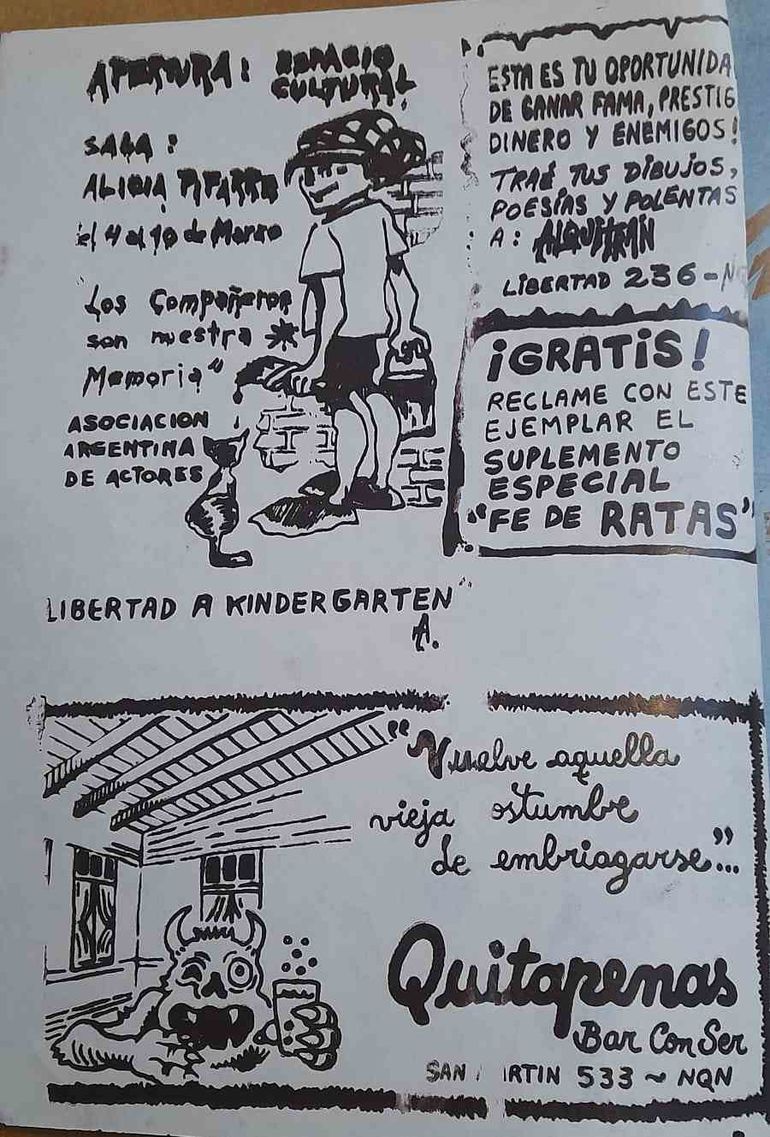 APERTURA: ESPACIO
CULTURAL
SALA:
ALICIA PIFARRE
el 4 al 10 de Marzo
"Los Compañeros
son nuestra
Memoria"
ASOCIACION
ARGENTINA
DE ACTORES
LIBERTAD A KINDERGARTEN"
A.
ESTA ES TU OPORTUNIDA
DE GANAR FAMA, PRESTIG
DINERO Y ENEMIGOS!
TRAÉ TUS DIBUJOS,
POESÍAS Y POLENTAS
A: ALQUITRAN
LIBERTAD 236-N
¡GRATIS!
RECLAME CON ESTE
EJEMPLAR EL
SUPLEMENTO
ESPECIAL
"FE DE RATAS"
"Vuelve aquella
vieja ostumbre
de embriagarse"...
Quitapenas
Bar Con Ser
SAN ARTIN 533 ~ NQN